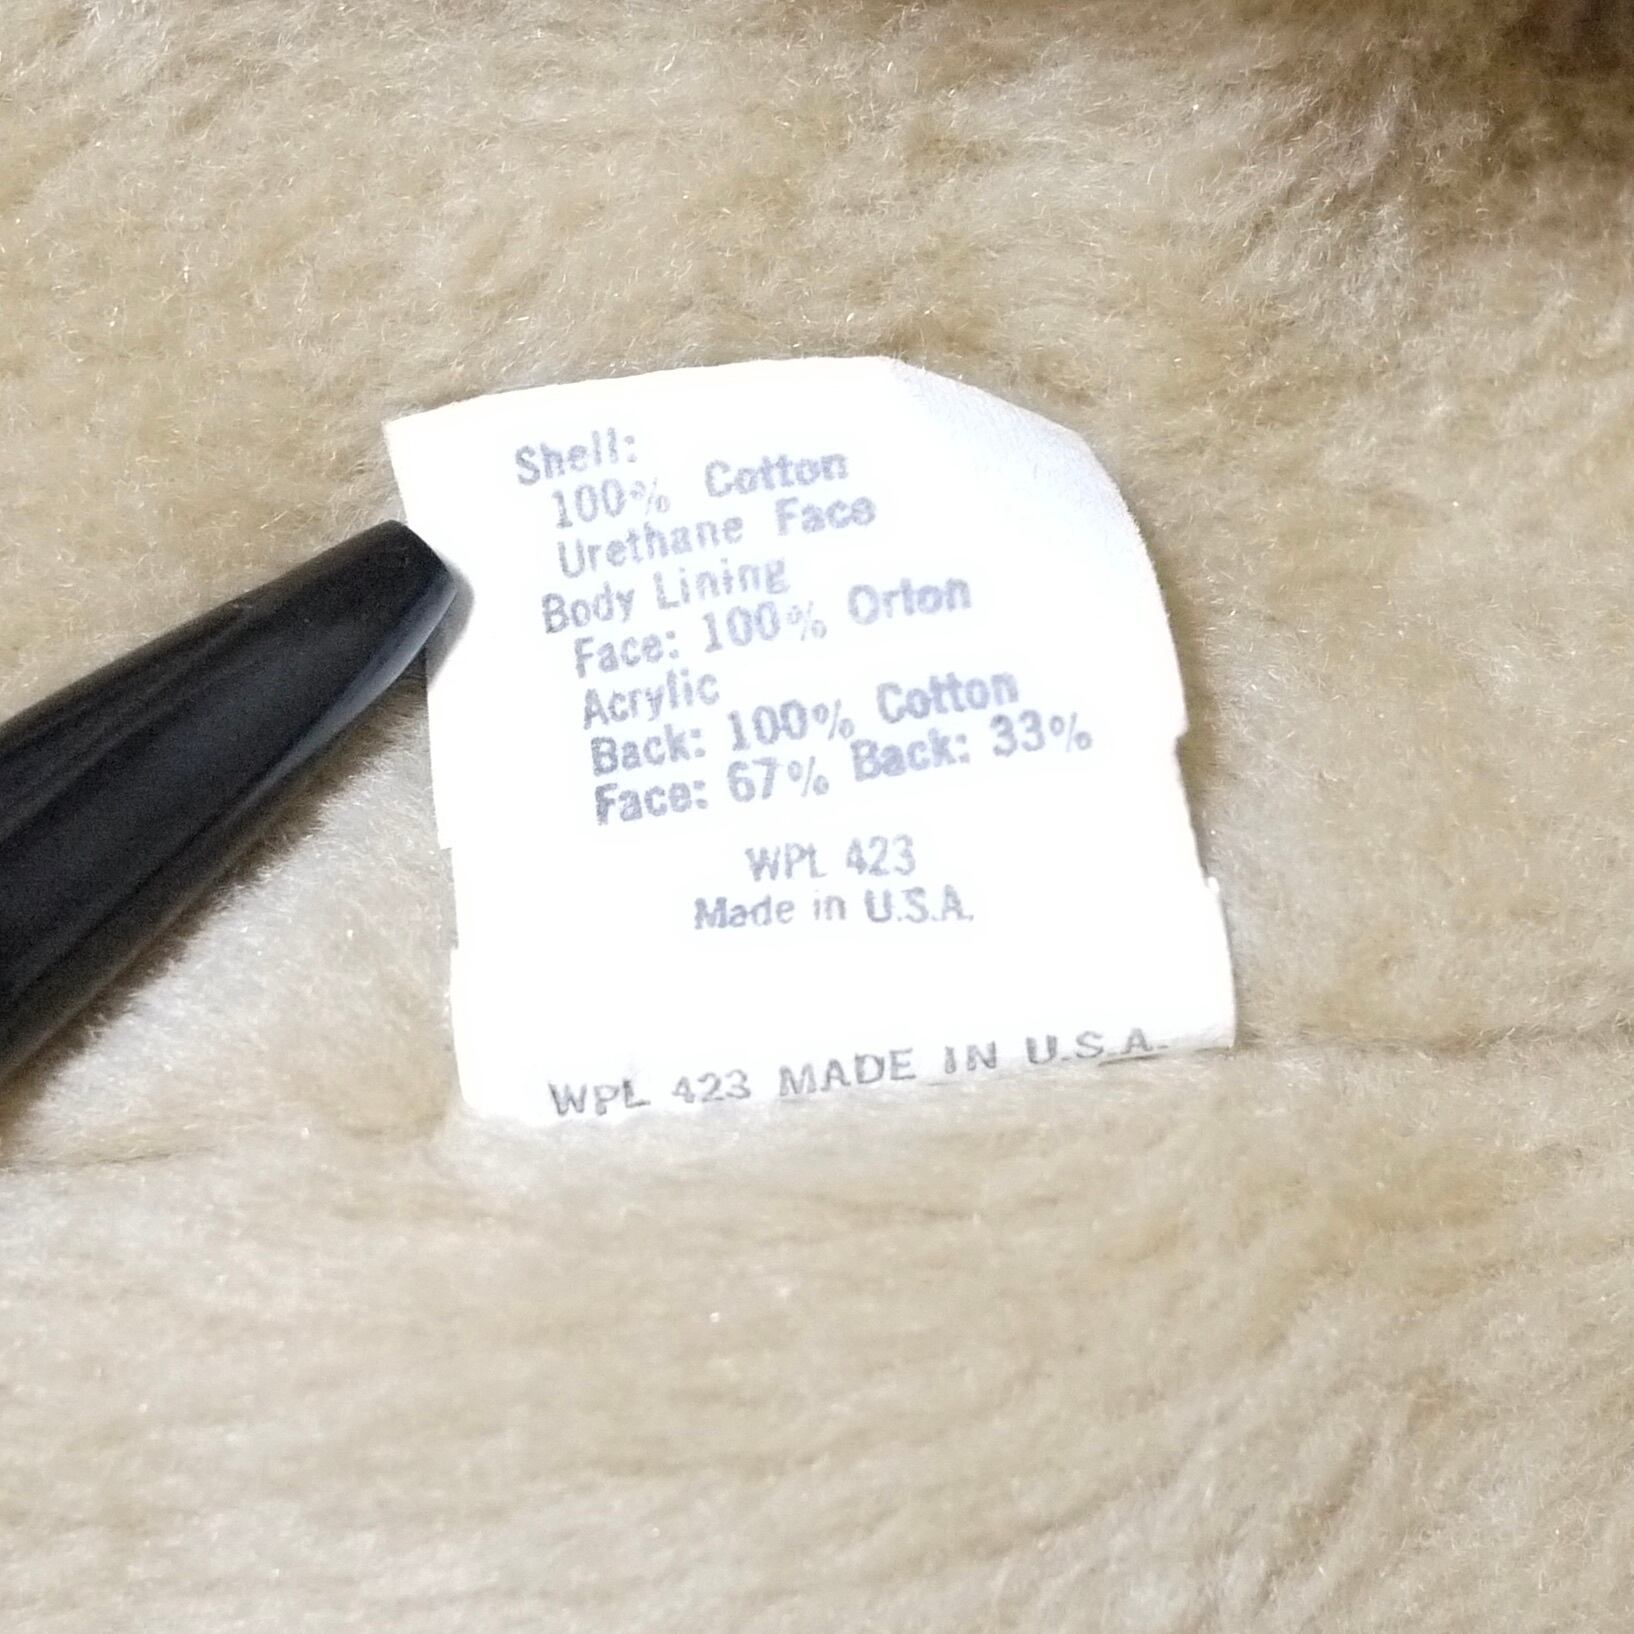 Shell:
100% Cotton
Urethane Face
Body Lining
Face: 100% Orlon
Acrylic
Back: 100% Cotton
Face: 67% Back: 33%
WPL 423
Made in U.S.A.
WPL 423 MADE IN U.S.A.